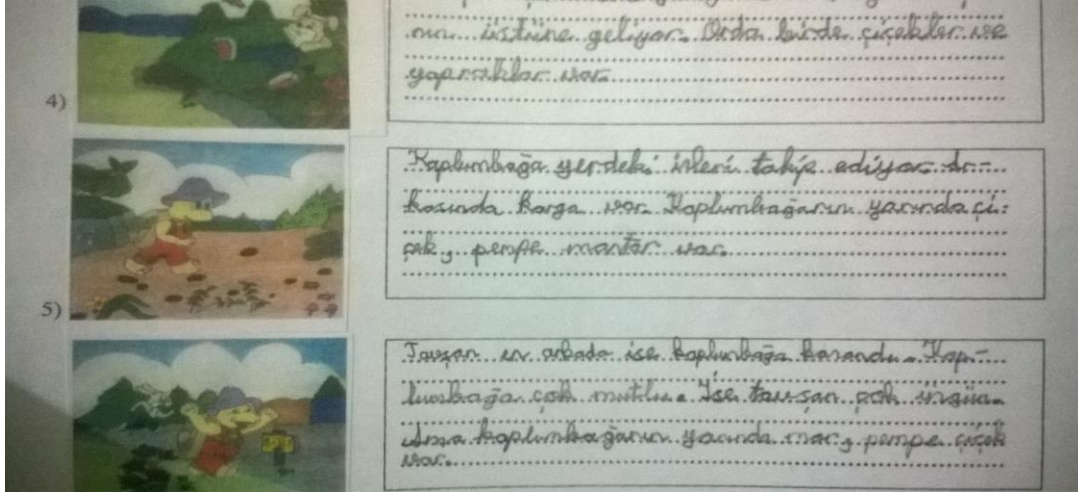 nın üstüne geliyor. Orda birde çiçekler ve
yapraklar var.
4)
Kaplumbağa yerdeki izleri takip ediyor. Ar-
kasında Karga var. Kaplumbağanın yanında çi-
çek, pempe mantar var.
5)
Tavşan en arkada ise kaplumbağa kazandı. Kap-
lumbağa çok mutlu. İse tavşan çok üzgün.
Ama kaplumbağanın yanında mor, pempe çiçek
var.